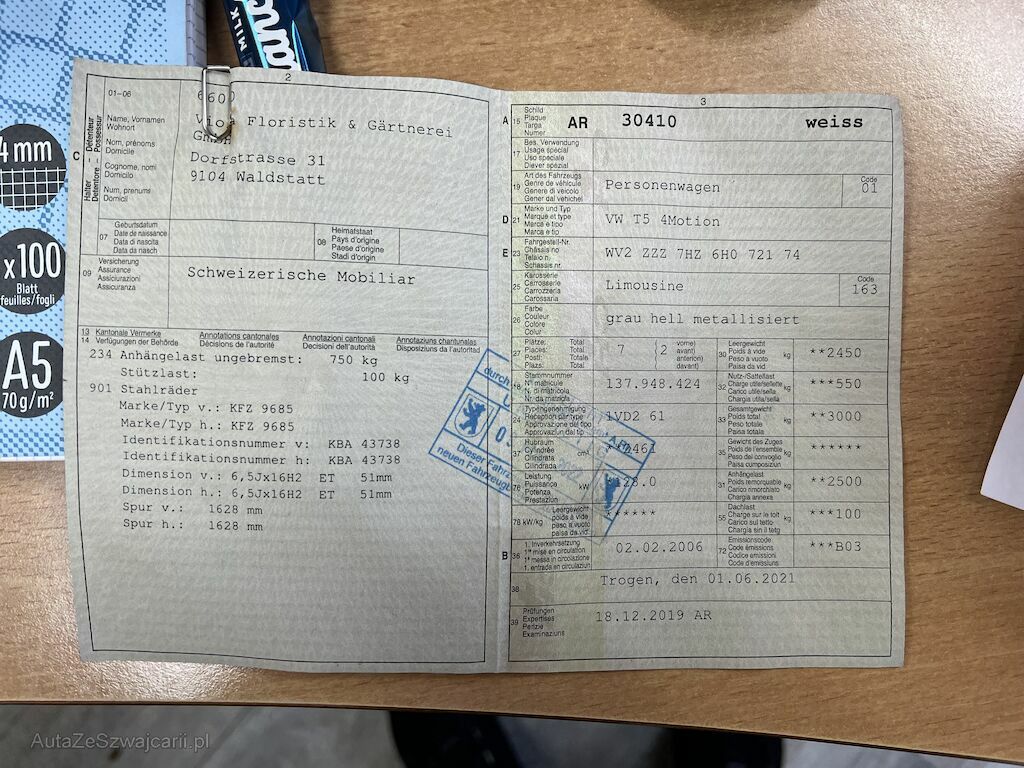 MILK
4 mm
x100
Blatt
feuilles/fogli
A5
70 g/m²
2
C
Halter – Détenteur
Detentore – Possessur
01–06
Name, Vornamen
Wohnort
Nom, prénoms
Domicile
Cognome, nomi
Domicilio
Num, prenums
Domicil
Floristik & Gärtnerei
GmbH
Dorfstrasse 31
9104 Waldstatt
07
Geburtsdatum
Date de naissance
Data di nascita
Data da nasch
08
Heimatstaat
Pays d'origine
Paese d'origine
Stadi d'origin
09
Versicherung
Assurance
Assicurazioni
Assicuranza
Schweizerische Mobiliar
13 Kantonale Vermerke
14 Verfügungen der Behörde
Annotations cantonales
Décisions de l'autorité
Annotazioni cantonali
Decisioni dell'autorità
Annotaziuns chantunalas
Disposiziuns da l'autoritad
234 Anhängelast ungebremst: 750 kg
Stützlast: 100 kg
901 Stahlräder
Marke/Typ v.: KFZ 9685
Marke/Typ h.: KFZ 9685
Identifikationsnummer v: KBA 43738
Identifikationsnummer h: KBA 43738
Dimension v.: 6,5Jx16H2 ET 51mm
Dimension h.: 6,5Jx16H2 ET 51mm
Spur v.: 1628 mm
Spur h.: 1628 mm
3
A 15
Schild
Plaque
Targa
Numer
AR 30410 weiss
17
Bes. Verwendung
Usage spécial
Uso speciale
Diever spezial
19
Art des Fahrzeugs
Genre de véhicule
Genere di veicolo
Gener dal vehichel
Personenwagen
Code
01
D 21
Marke und Typ
Marque et type
Marca e tipo
Marca e tip
VW T5 4Motion
E 23
Fahrgestell-Nr.
Châssis no
Telaio n.
Schassis nr.
WV2 ZZZ 7HZ 6H0 721 74
25
Karosserie
Carrosserie
Carrozzeria
Carossaria
Limousine
Code
163
26
Farbe
Couleur
Colore
Colur
grau hell metallisiert
27
Plätze: Total
Places: Total
Posti: Totale
Plazs: Total
7 (2
vorne)
avant)
anteriori)
davant)
30
Leergewicht
Poids à vide
Peso a vuoto
Paisa da vid
kg
**2450
18
Stammnummer
N° matricule
N. di matricola
Nr. da matricla
137.948.424
32
Nutz-/Sattellast
Charge utile/sellette
Carico utile/sella
Chargia utila/sella
kg
***550
24
Typengenehmigung
Réception par type
Approvazione del tipo
Approvaziun dal tip
1VD2 61
33
Gesamtgewicht
Poids total
Peso totale
Paisa totala
kg
**3000
37
Hubraum
Cylindrée
Cilindrata
Cilindrada
cm³
2461
35
Gewicht des Zuges
Poids de l'ensemble
Peso del convoglio
Paisa cumposiziun
kg
******
76
Leistung
Puissance
Potenza
Prestaziun
kW
*128.0
31
Anhängelast
Poids remorquable
Carico rimorchiato
Chargia annexa
kg
**2500
78 kW/kg
Leergewicht
poids à vide
peso a vuoto
paisa da vid
******
55
Dachlast
Charge sur le toit
Carico sul tetto
Chargia sin il tetg
kg
***100
B 36
1. Inverkehrsetzung
1re mise en circulation
1a messa in circolazione
1. entrada en circulaziun
02.02.2006
72
Emissionscode
Code émissions
Codice emissioni
Code d'emissiuns
***B03
38
Trogen, den 01.06.2021
39
Prüfungen
Expertises
Perizie
Examinaziuns
18.12.2019 AR
durch
Dieser Fahrz
neuen Fahrzeug
AutaZeSzwajcarii.pl